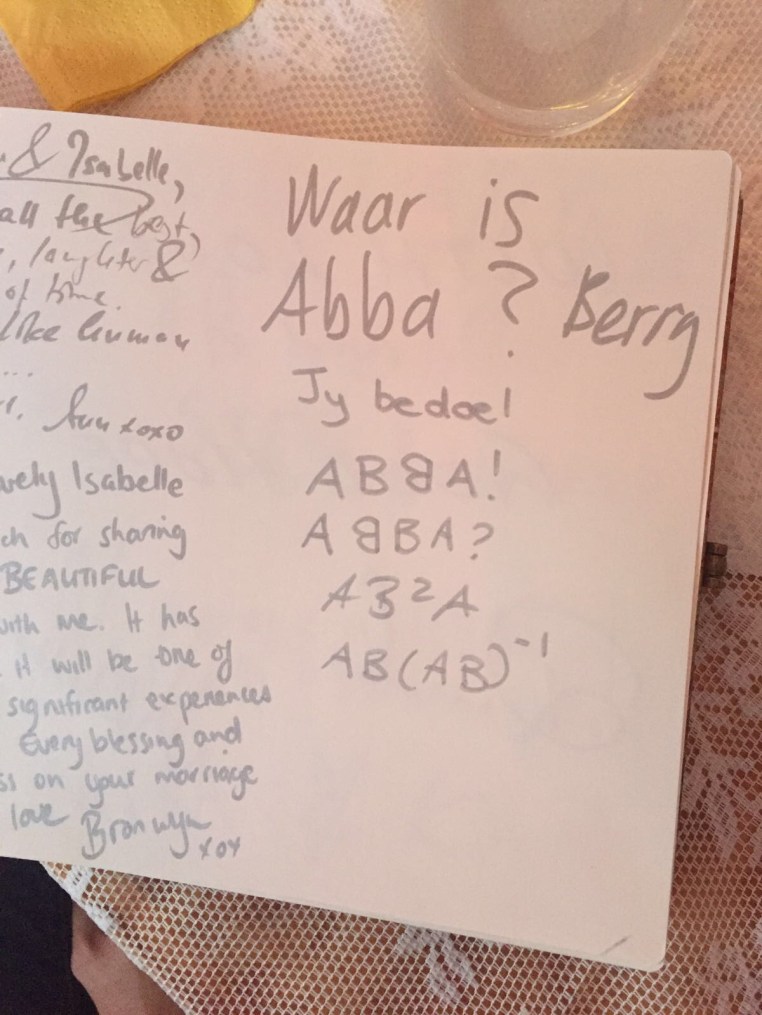 & Isabelle,
all the best,
, laughter &
of time.
like human
...
xoxo
Isabelle
ch for sharing
BEAUTIFUL
with me. It has
it will be one of
significant experiences
Every blessing and
ss on your marriage
love Bronwyn
xox
Waar is
Abba ? Berry
Jy bedoel
ABBA!
ABBA?
AB²A
AB(AB)⁻¹